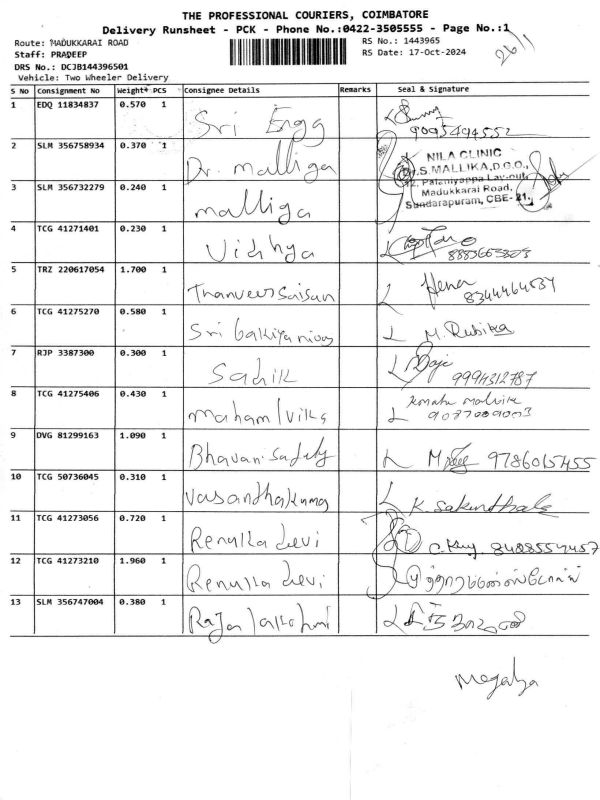 THE PROFESSIONAL COURIERS, COIMBATORE
Delivery Runsheet - PCK - Phone No.:0422-3505555 - Page No.:1
Route: MADUKKARAI ROAD RS No.: 1443965
Staff: PRADEEP RS Date: 17-Oct-2024
DRS No.: DCJB144396501
Vehicle: Two Wheeler Delivery
S No Consignment No Weight PCS Consignee Details Remarks Seal & Signature
1 EDQ 11834837 0.570 1 Sri Engg
9095494552
2 SLM 356758934 0.370 1 Dr. malliga
NILA CLINIC
Dr.S.MALLIKA,D.G.O.,
12, Palaniyappa Lay-out,
Madukkarai Road,
Sundarapuram, CBE-21.
3 SLM 356732279 0.240 1 malliga
4 TCG 41271401 0.230 1 Vidhya
5 TRZ 220617054 1.700 1 Thanveer saisan Hena
8344464534
6 TCG 41275270 0.580 1 Sri bakiya nivas M. Rubika
7 RJP 3387300 0.300 1 Sadik
9994312787
8 TCG 41275406 0.430 1
9 DVG 81299163 1.090 1 Bhavani 9786015455
10 TCG 50736045 0.310 1 Vasanthakumar K. Sakunthale
11 TCG 41273056 0.720 1 Renuka devi 8488554457
12 TCG 41273210 1.960 1 Renuka devi
13 SLM 356747004 0.380 1 Raja lakshmi